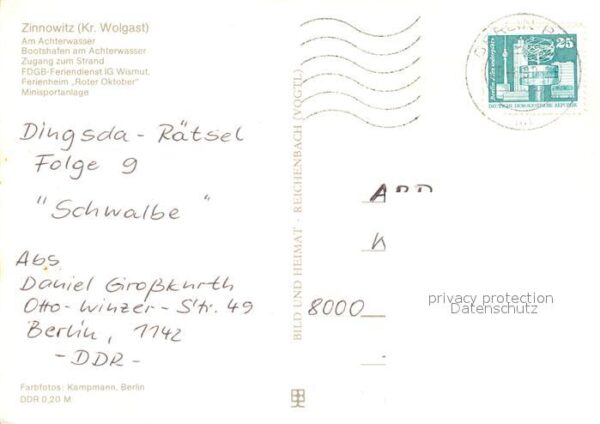 Zinnowitz (Kr. Wolgast)
Am Achterwasser
Bootshafen am Achterwasser
Zugang zum Strand
FDGB-Feriendienst IG Wismut.
Ferienheim „Roter Oktober"
Minisportanlage
Dingsda - Rätsel
Folge 9
"Schwalbe"
Abs
Daniel Großkurth
Otto-Winzer-Str. 49
Berlin, 1142
-DDR-
Farbfotos: Kampmann, Berlin
DDR 0,20 M
BILD UND HEIMAT · REICHENBACH (VOGTL)
25
DEUTSCHE DEMOKRATISCHE REPUBLIK
ARD
8000
privacy protection
Datenschutz